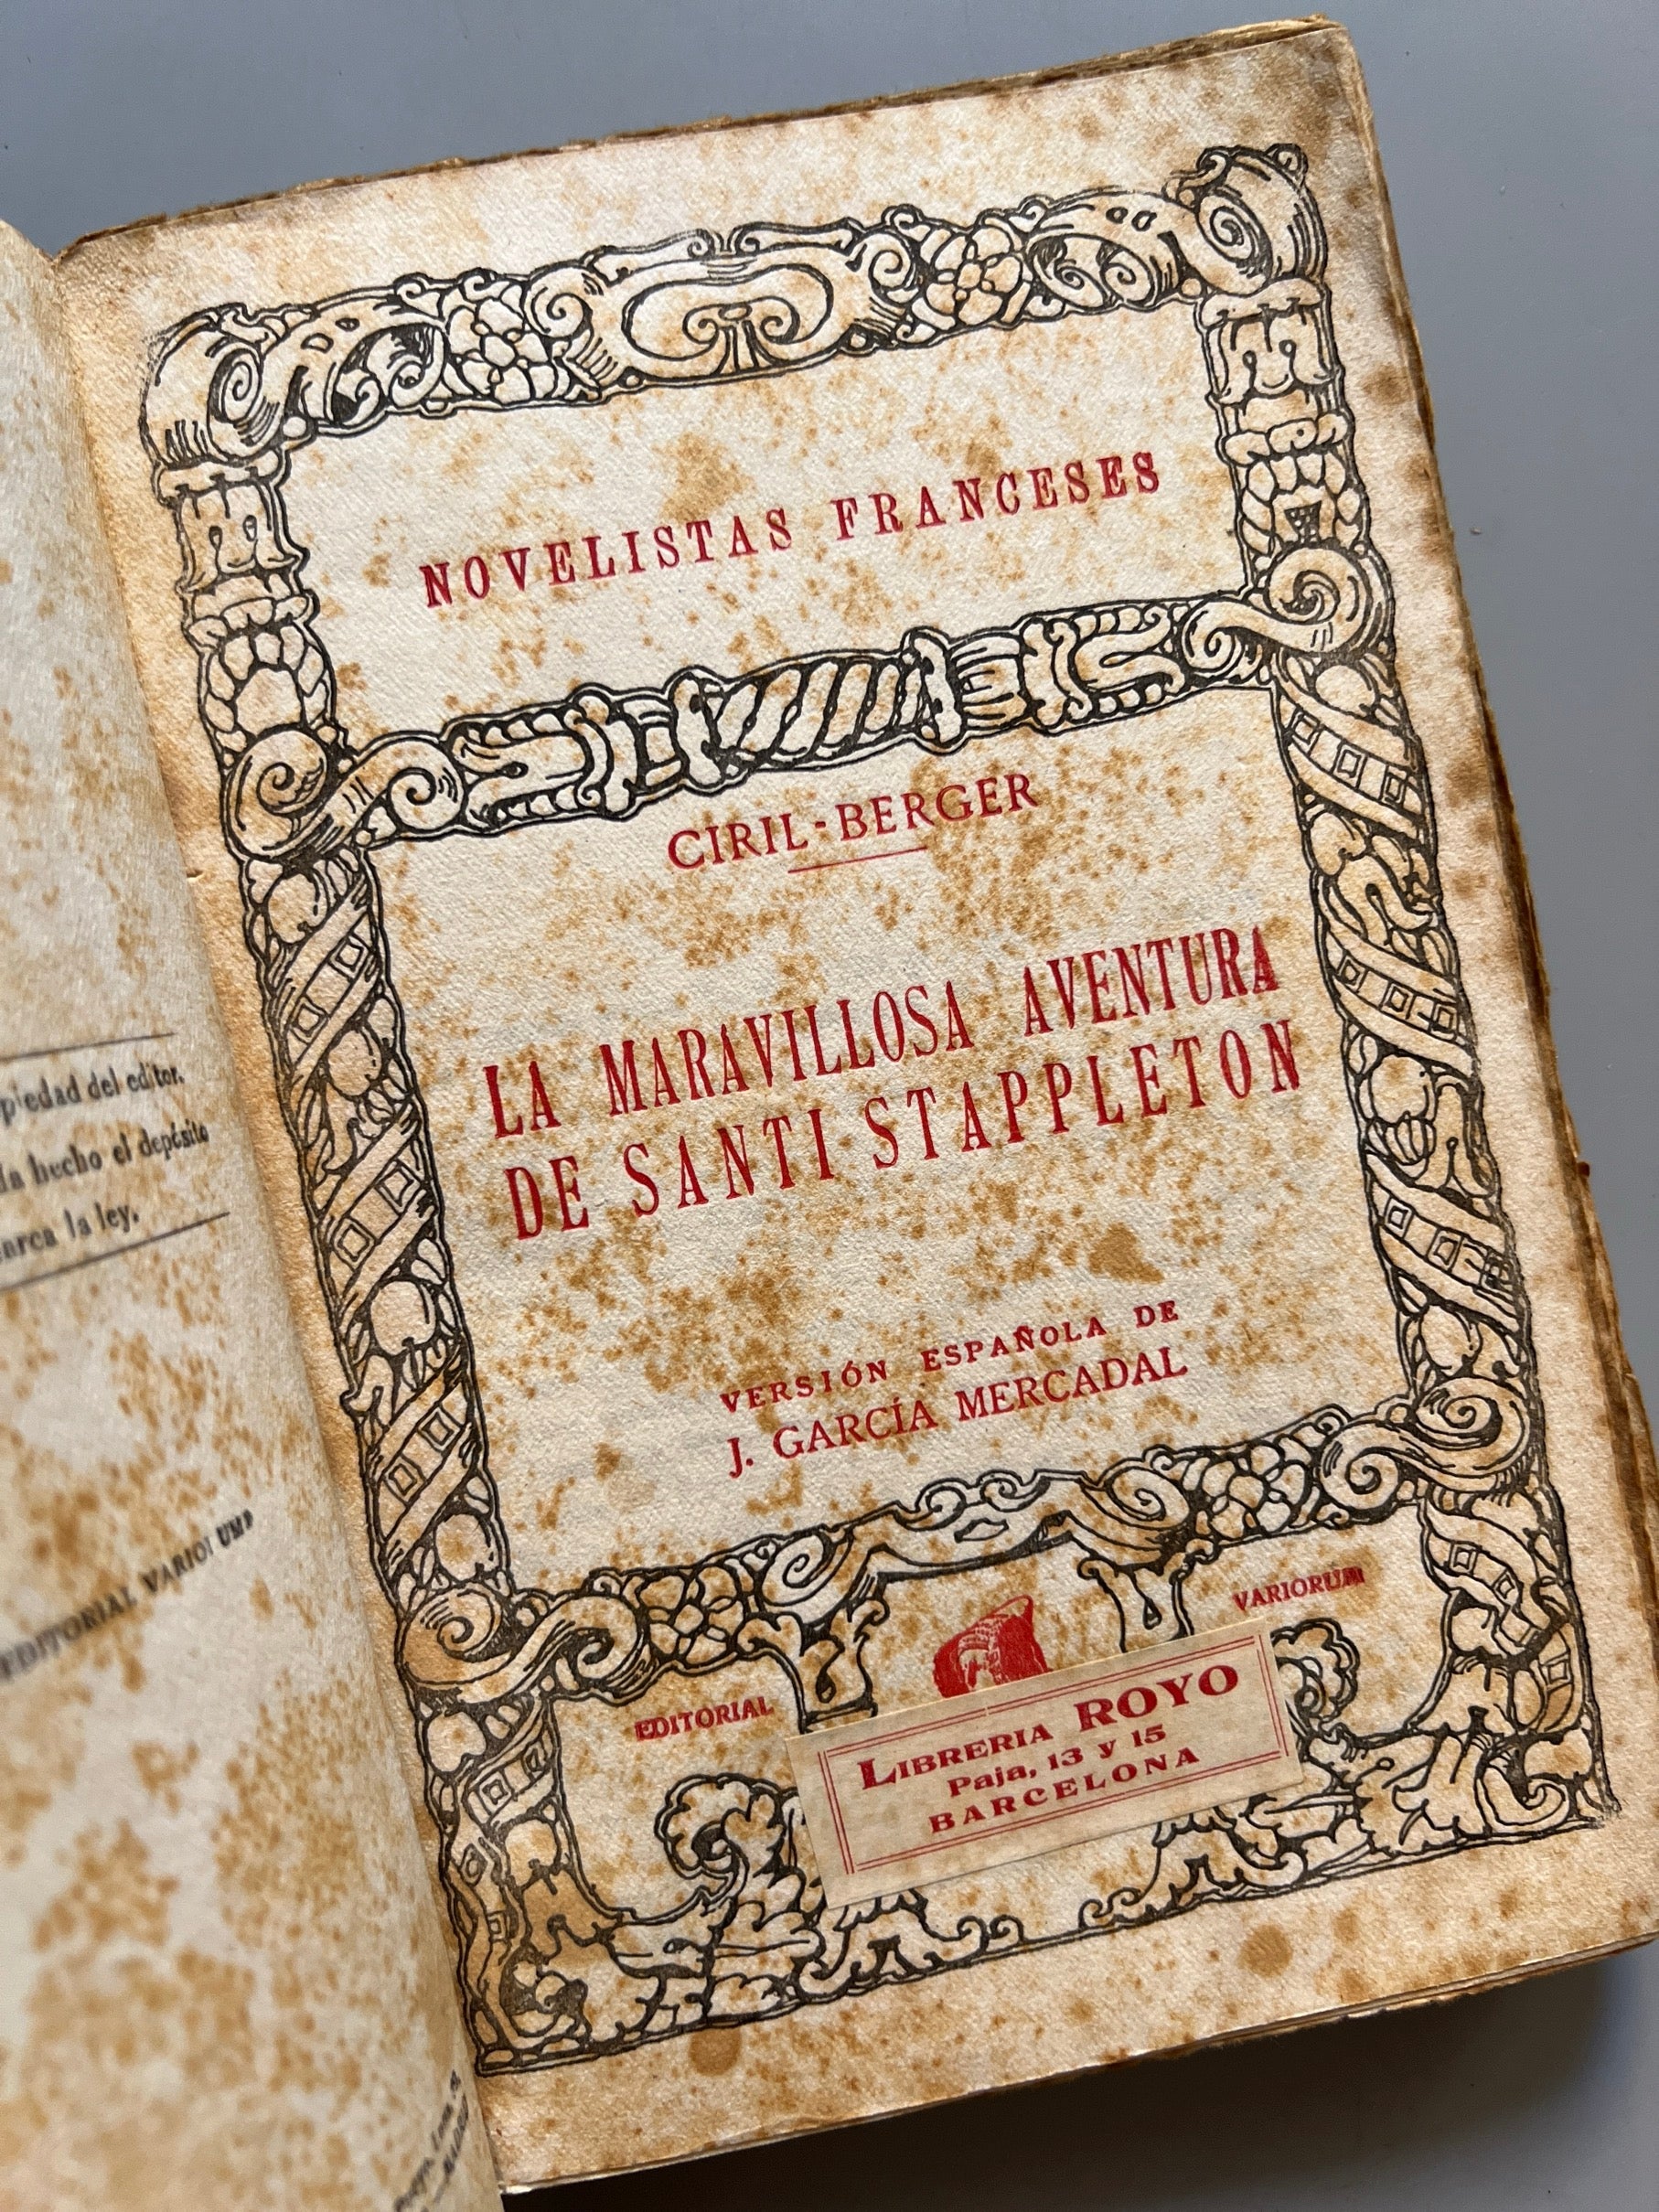 piedad del editor.
hecho el depósito
marca la ley.
EDITORIAL VARIORUM
NOVELISTAS FRANCESES
CIRIL-BERGER
LA MARAVILLOSA AVENTURA
DE SANTI STAPPLETON
VERSIÓN ESPAÑOLA DE
J. GARCÍA MERCADAL
EDITORIAL
VARIORUM
LIBRERIA ROYO
Paja, 13 y 15
BARCELONA